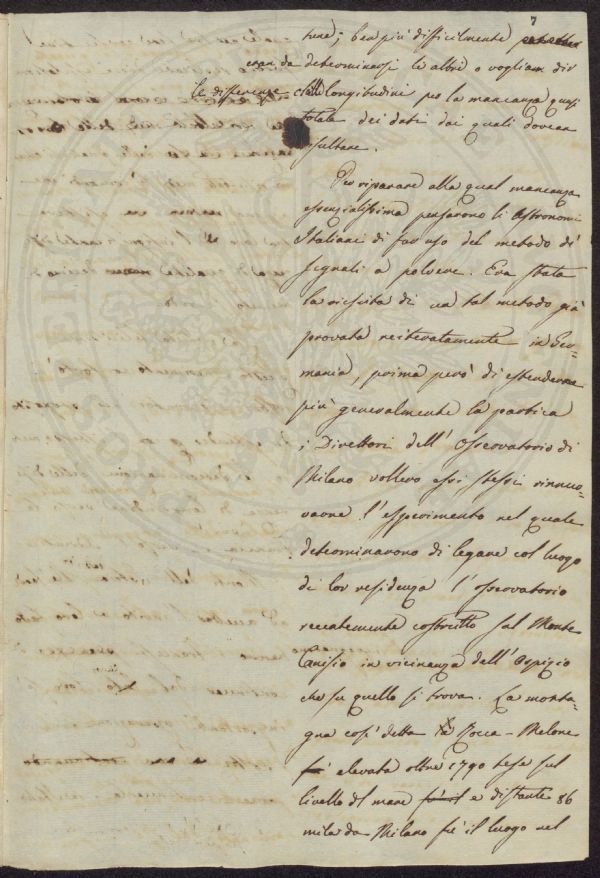 7
tune; ben più difficilmente
eran da determinarsi le altre o vogliam dir
le differenze delle longitudini per la mancanza quasi
totale dei dati dai quali dovean
risultare.
Per riparare alla qual mancanza
essenzialissima pensarono li Astronomi
Italiani di far uso del metodo di
segnali a polvere. Era stata
la riescita di un tal metodo già
provata reiteratamente in Ger-
mania, prima però di estenderne
più generalmente la pratica
i Direttori dell' Osservatorio di
Milano vollero essi stessi rinnuo-
varne l'esperimento nel quale
determinarono di legare col luogo
di lor residenza l'osservatorio
recentemente costrutto sul Monte
Cenisio in vicinanza dell' Ospizio
che su quello si trova. La monta-
gna così detta Rocca-Melone
elevata oltre 1790 tese sul
livello del mare e distante 86
mila da Milano fu il luogo nel